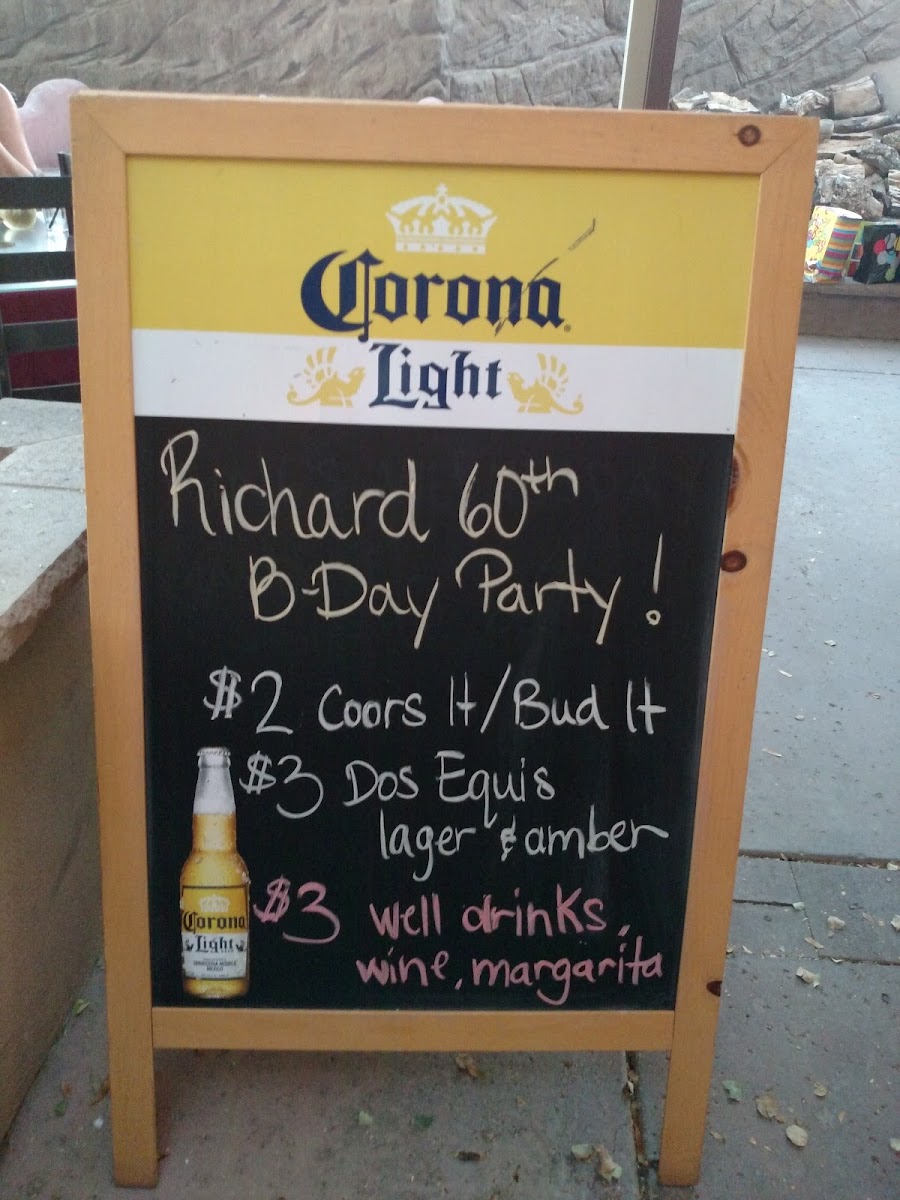 Corona
Light
Richard 60th
B-Day Party!
$2 Coors lt/Bud lt
$3 Dos Equis
lager & amber
$3 well drinks,
wine, margarita
Corona
Light